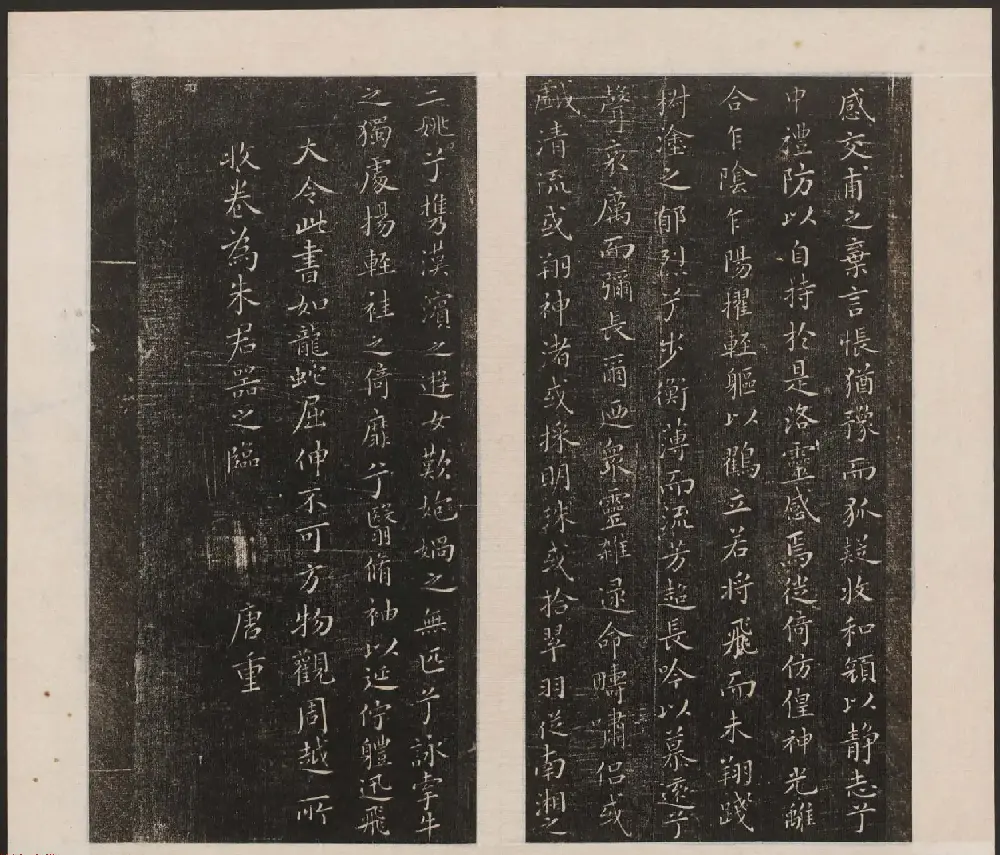 感交甫之棄言悵猶豫而狐疑收和顏以靜志兮
申禮防以自持於是洛靈感焉徙倚仿偟神光離
合乍陰乍陽擢輕軀以鸖立若將飛而未翔踐
椒塗之郁烈兮步衡薄而流芳超長吟以慕遠兮
聲哀厲而彌長爾迺衆靈雜遝命疇嘯侣或
戲清流或翔神渚或採明珠或拾翠羽從南湘之
二姚兮攜漢濱之遊女歎炮媧之無匹兮詠牽牛
之獨處揚輕袿之倚靡兮翳脩袖以延佇體迅飛
大令此書如龍蛇屈伸不可方物觀周越所
收卷為朱君器之臨
唐重